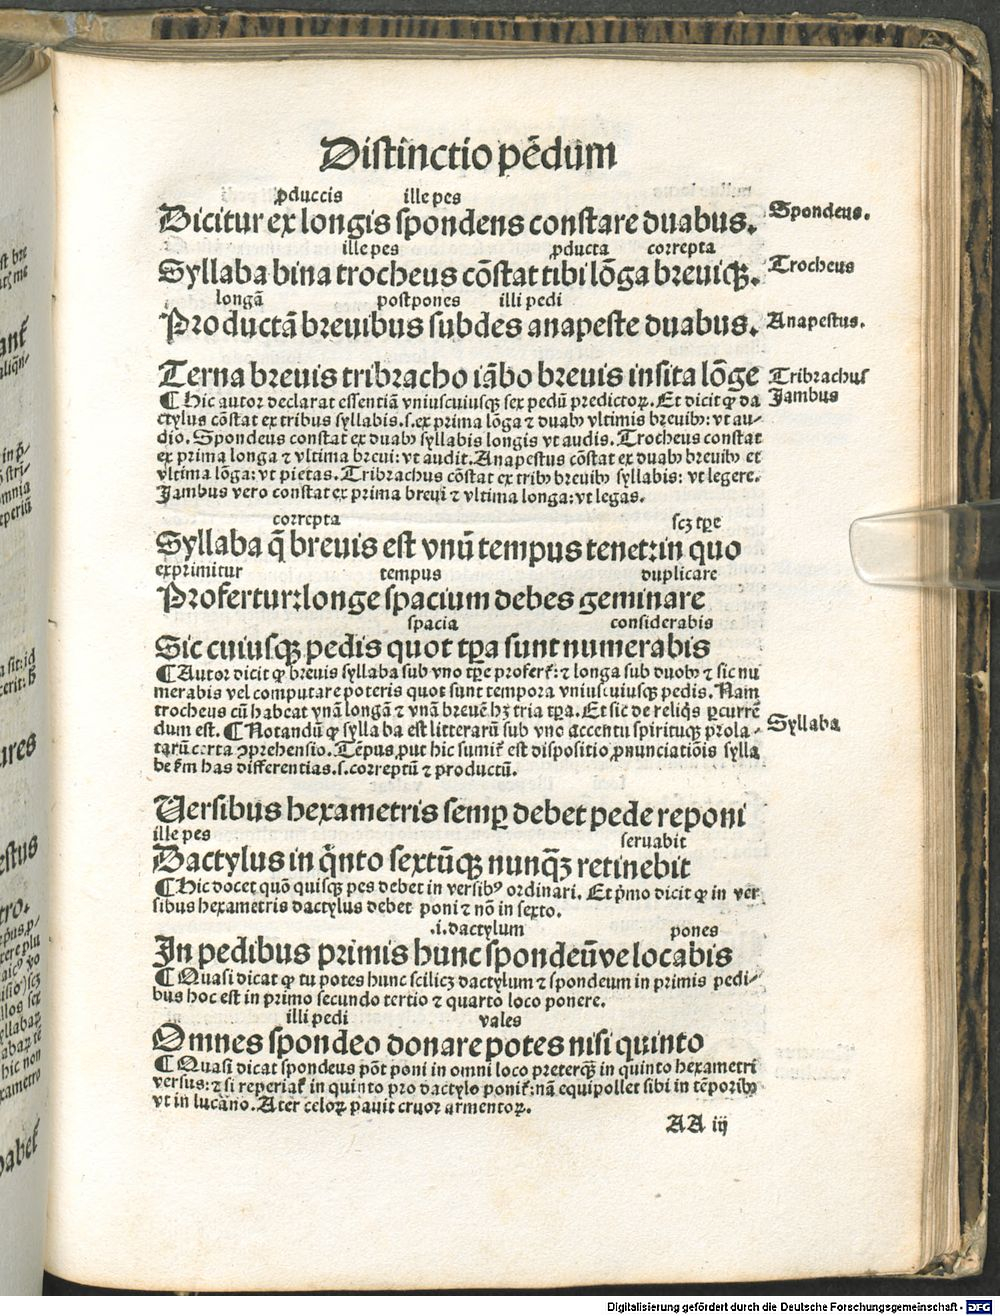 Distinctio pēdum
ꝓduccis ille pes
Dicitur ex longis spondens constare duabus. Spondeus.
ille pes ꝓducta correpta
Syllaba bina trocheus cōstat tibi lōga breuiqꝫ. Trocheus
longā postpones illi pedi
Productā breuibus subdes anapeste duabus. Anapestus.
Terna breuis tribracho iābo breuis insita lōge Tribrachus
¶ Hic autor declarat essentiā vniuscuiusqꝫ sex pedū predictoꝝ. Et dicit ꝙ da Jambus
ctylus cōstat ex tribus syllabis.s.ex prima lōga ⁊ duabꝰ vltimis breuibꝰ: vt au⸗
dio. Spondeus constat ex duabꝰ syllabis longis vt audis. Trocheus constat
ex prima longa ⁊ vltima breui: vt audit. Anapestus cōstat ex duabꝰ breuibꝰ et
vltima lōga: vt pietas. Tribrachus cōstat ex tribꝰ breuibꝰ syllabis: vt legere.
Jambus vero constat ex prima breui ⁊ vltima longa: vt legas.
correpta scꝫ tꝑe
Syllaba q̄ breuis est vnū tempus tenet: in quo
exprimitur tempus duplicare
Profertur: longe spacium debes geminare
spacia considerabis
Sic cuiusqꝫ pedis quot tꝑa sunt numerabis
¶ Autor dicit ꝙ breuis syllaba sub vno tꝑe profert᷑: ⁊ longa sub duobꝰ ⁊ sic nu
merabis vel computare poteris quot sunt tempora vniuscuiusqꝫ pedis. Nam
trocheus cū habeat vnā longā ⁊ vnā breuē hꝫ tria tꝑa. Et sic de reliq̄s ꝑcurrē
dum est. ¶ Notandū ꝙ sylla ba est litterarū sub vno accentu spirituqꝫ prola⸗ Syllaba
tarū certa ꝯprehensio. Tēpus ꝓut hic sumit᷑ est dispositio ꝓnunciatiōis sylla
be ẜm has differentias.s.correptū ⁊ productū.
Versibus hexametris semꝑ debet pede reponi
ille pes seruabit
Dactylus in q̄nto sextūqꝫ nunqꝫ retinebit
¶ Hic docet quō quisqꝫ pes debet in versibꝰ ordinari. Et pͥmo dicit ꝙ in ver
sibus hexametris dactylus debet poni ⁊ nō in sexto.
.i.dactylum pones
In pedibus primis hunc spondeūve locabis
¶ Quasi dicat ꝙ tu potes hunc scilicꝫ dactylum ⁊ spondeum in primis pedi⸗
bus hoc est in primo secundo tertio ⁊ quarto loco ponere.
illi pedi vales
Omnes spondeo donare potes nisi quinto
¶ Quasi dicat spondeus pōt poni in omni loco preterqꝫ in quinto hexametri
versus: ⁊ si reperiat᷑ in quinto pro dactylo ponit᷑: nā equipollet sibi in tēporibꝰ
vt in lucano. Ater celoꝝ pauit cruor armentoꝝ.
AA iij
Digitalisierung gefördert durch die Deutsche Forschungsgemeinschaft - DFG